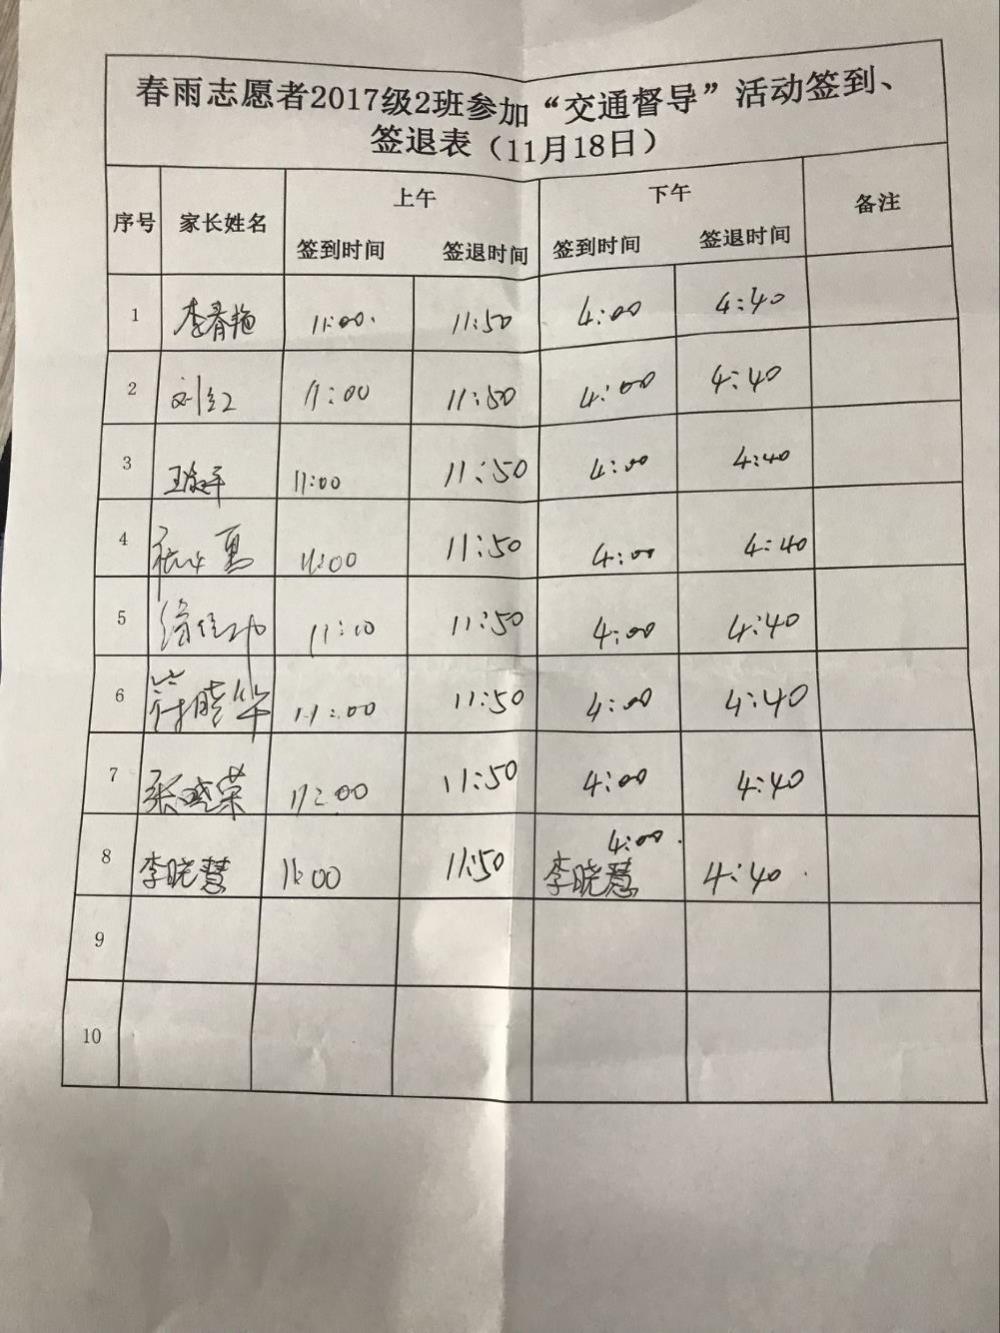 春雨志愿者2017级2班参加“交通督导”活动签到、
签退表（11月18日）
序号 家长姓名 上午 下午 备注
签到时间 签退时间 签到时间 签退时间
1 李春艳 11:00. 11:50 4:00 4:40
2 刘红 11:00 11:50 4:00 4:40
3 11:00 11:50 4:00 4:40
4 11:00 11:50 4:00 4:40
5 11:10 11:50 4:00 4:40
6 11:00 11:50 4:00 4:40
7 张晓荣 11:00 11:50 4:00 4:40
8 李晓慧 11:00 11:50 4:00. 李晓慧 4:40
9
10